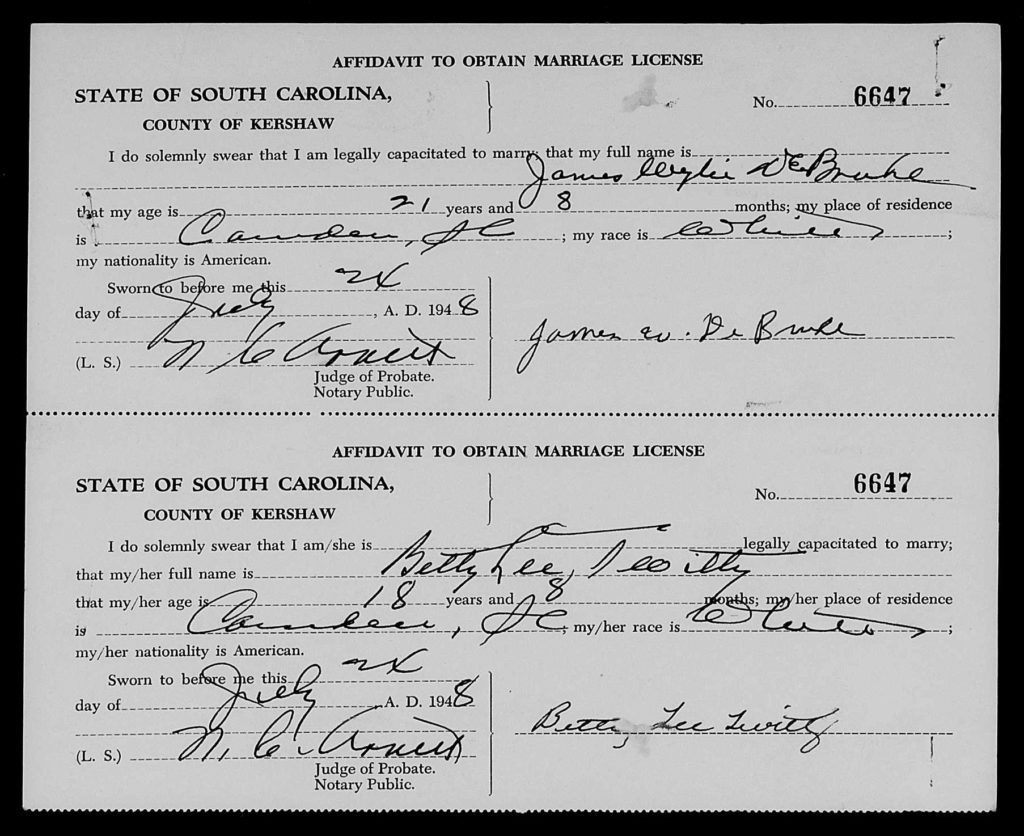 AFFIDAVIT TO OBTAIN MARRIAGE LICENSE
STATE OF SOUTH CAROLINA,
No. 6647
COUNTY OF KERSHAW
I do solemnly swear that I am legally capacitated to marry; that my full name is
James Wylie DeBruhl
that my age is 21 years and 8 months; my place of residence
is Camden, SC; my race is White;
my nationality is American.
Sworn to before me this 24
day of July, A. D. 1948
James W. De Bruhl
(L. S.) N. C. Arnett
Judge of Probate.
Notary Public.
AFFIDAVIT TO OBTAIN MARRIAGE LICENSE
STATE OF SOUTH CAROLINA,
No. 6647
COUNTY OF KERSHAW
I do solemnly swear that I am/she is legally capacitated to marry;
that my/her full name is Betty Lee
that my/her age is 18 years and 8 months; my/her place of residence
is Camden, SC; my/her race is White;
my/her nationality is American.
Sworn to before me this 24
day of July A. D. 1948
Betty Lee
(L. S.) N. C. Arnett
Judge of Probate.
Notary Public.